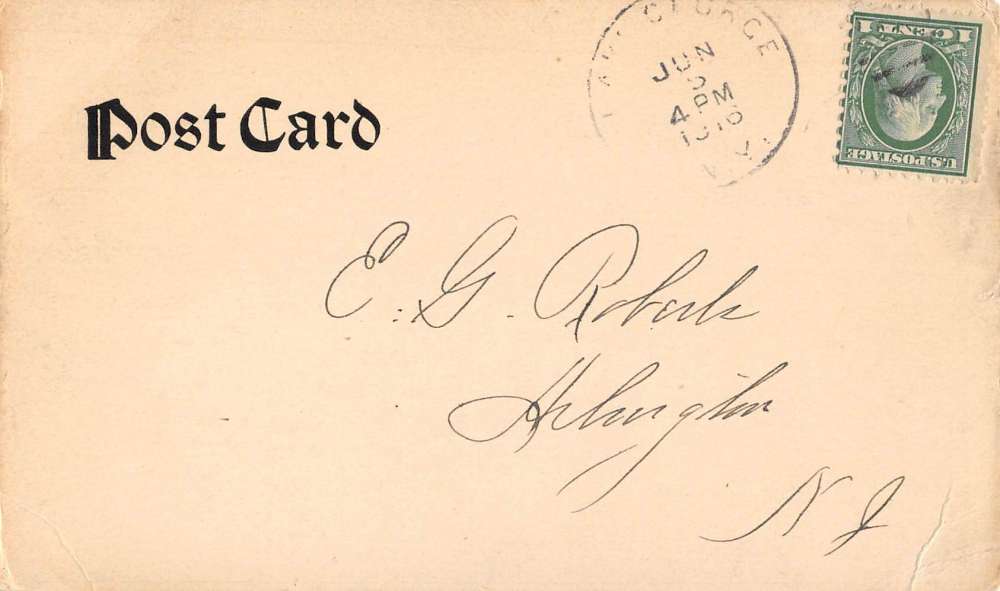 Post Card
LAKE GEORGE
JUN
4 PM
1916
N.Y.
1 CENT 1
U.S. POSTAGE
E. G. Roberts
Arlington
N J